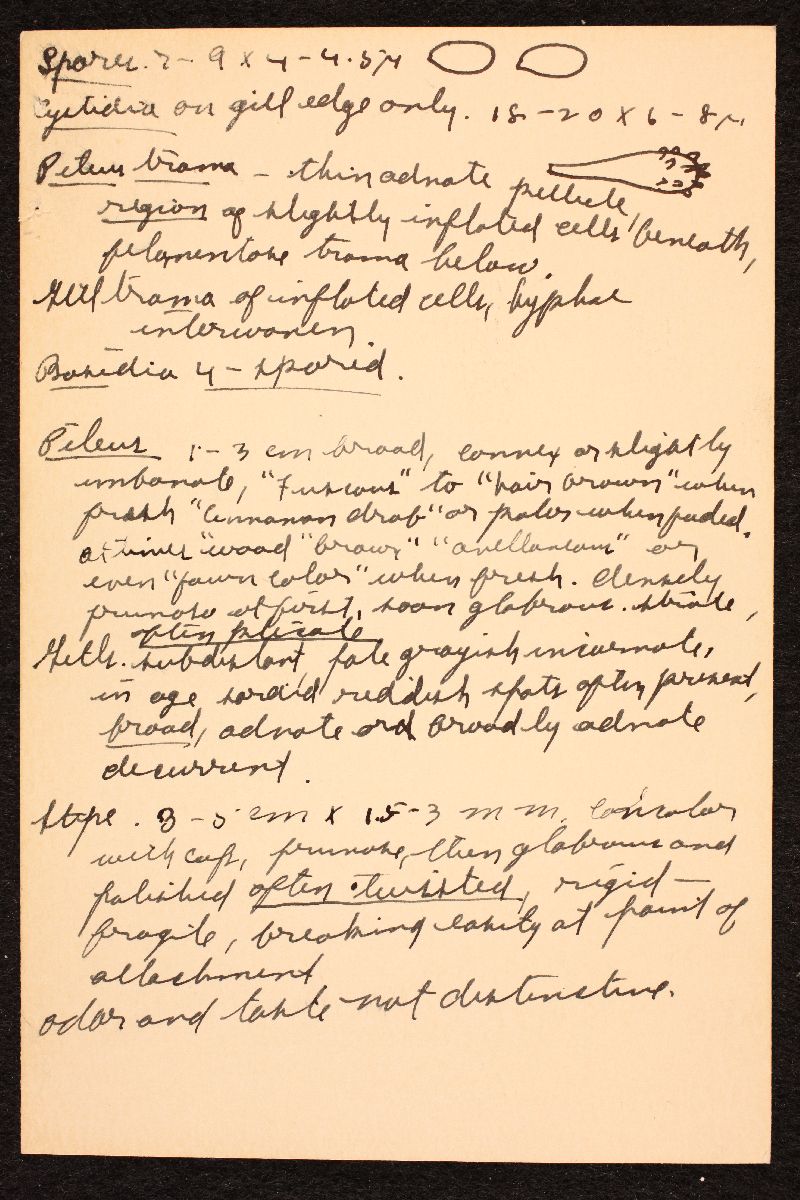 Spores. 7 - 9 x 4 - 4.5 µ
Cystidia on gill edge only. 18 - 20 x 6 - 8 µ
Pileus trama - thin adnate pellicle,
region of slightly inflated cells beneath,
filamentose trama below.
Gill trama of inflated cells, hyphae
interwoven.
Basidia 4 - spored.
Pileus 1 - 3 cm broad, convex or slightly
umbonate, "Fuscous" to "hair brown" when
fresh "cinnamon drab" or paler when faded.
at times "wood "brown" "avellaneous" or
even "fawn color" when fresh. densely
pruinose at first, soon glabrous. striate,
often plicate
Gills. subdistant, pale grayish incarnate,
in age sordid reddish spots often present,
broad, adnate and broadly adnate
decurrent.
Stipe. 3 - 5 cm x 1.5 - 3 mm. concolor
with cap, pruinose, then glabrous and
polished often twisted, rigid -
fragile, breaking easily at point of
attachment
odor and taste not distinctive.